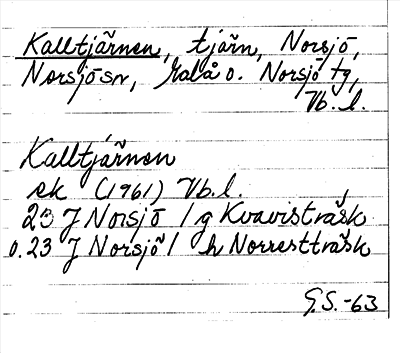 Kalltjärnen, tjärn, Norsjö,
Norsjö sn, Malå o. Norsjö tg,
Vb. l.
Kalltjärnen
ek (1961) Vb. l.
23 J Norsjö / g Kvavisträsk
o. 23 J Norsjö / h Norrestträsk
G.S. -63